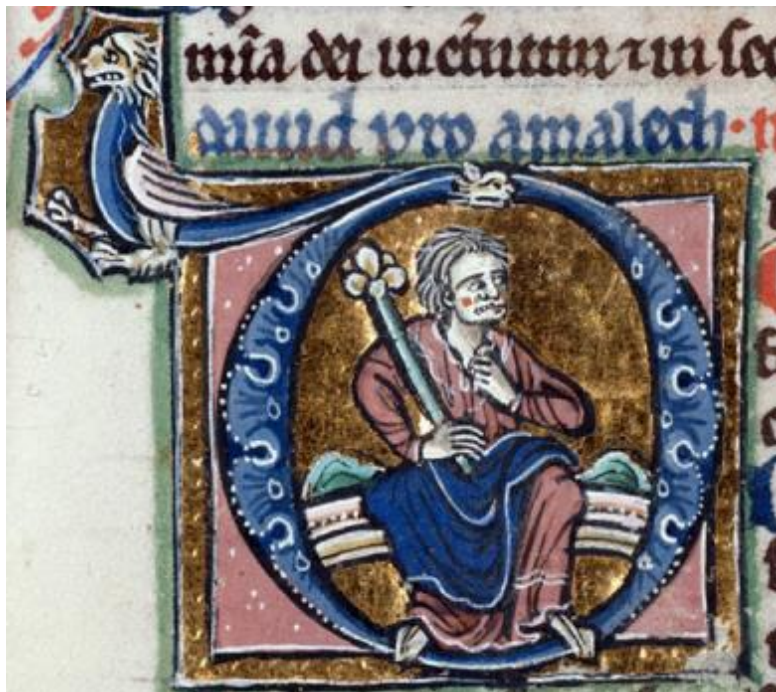 mīa dei in et̄num ⁊ in sec
dauid pro amalech ·